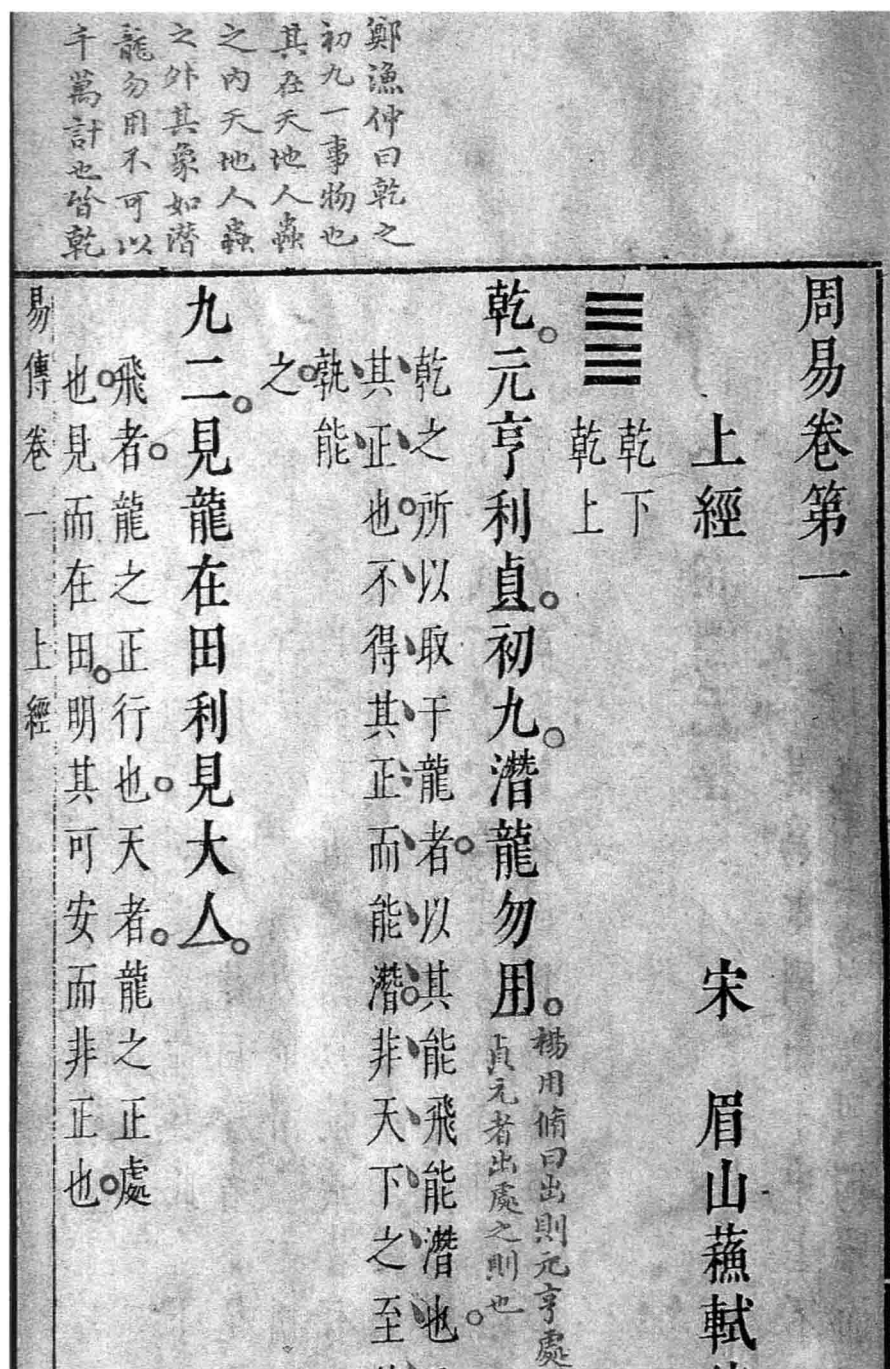 鄭漁仲曰乾之
初九一事物也
其在天地人蟲
之內天地人蟲
之外其象如潛
龍勿用不可以
千萬計也皆乾
周易卷第一
上經 宋 眉山蘓軾
乾下
乾上
乾。元亨利貞。初九。潛龍勿用。
楊用脩曰出則元亨處
貞元者出處之則也
乾之所以取于龍者。以其能飛能潛也。
其正也。不得其正而能潛。非天下之至
孰能
之。
九二。見龍在田利見大人。
飛者。龍之正行也。天者。龍之正處
也。見而在田。明其可安而非正也。
易傳卷一 上經